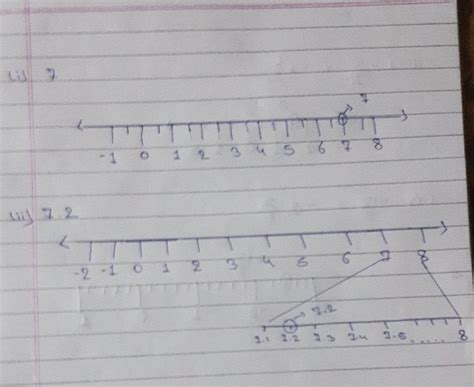 (i) 7
7
-1 0 1 2 3 4 5 6 7 8
(ii) 7.2
-2 -1 0 1 2 3 4 5 6 7 8
7.2
7.1 7.2 7.3 7.4 7.5 ...... 8